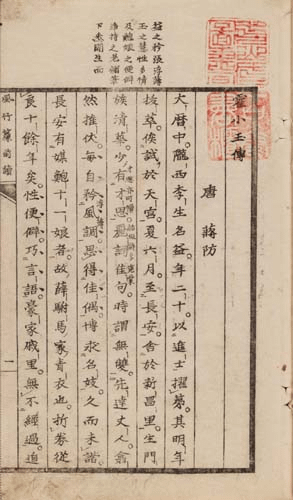 益之矜張浮薄
玉之慧性多情
及鮑娘之便僻
淨持之老
下
霍小玉傳
唐 蔣防
大曆中。隴西李生名益。年二十。以進士擢第。其明年
拔萃。俟試於天官。夏六月。至長安。舍於新昌里。生門
族清華。少有才思。麗詞佳句。時謂無雙。先達丈人。翕
然推伏。每自矜風調。思得佳偶。博求名妓。久而未諧。
長安有媒鮑十一娘者。故薛駙馬家青衣也。折券從
良。十餘年矣。性便僻。巧言語。豪家戚里。無不經過。追
竹簾前讀
一